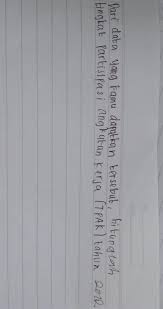 Dari data yang kamu dapatkan tersebut, hitunglah
tingkat partisipasi angkatan kerja (TPAK) tahun 2012.